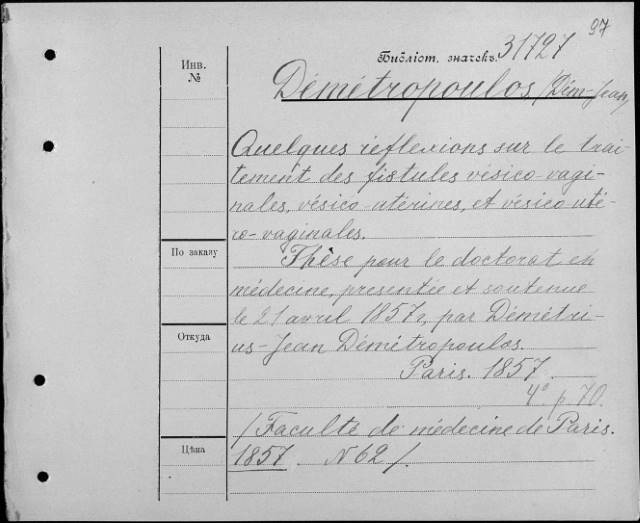 97
Библіот. значекъ. 31727
Инв.
№
Démétropoulos (Dém-Jean)
Quelques réflexions sur le trai-
tement des fistules vésico-vagi-
nales, vésico-utérines, et vésico-uté-
ro-vaginales.
По заказу
Thèse pour le doctorat en
médecine, présentée et soutenue
le 21 avril 1857, par Démétri-
Откуда
us-Jean Démétropoulos.
Paris. 1857.
4° p. 70.
(Faculté de médecine de Paris.
Цѣна
1857. N 62).